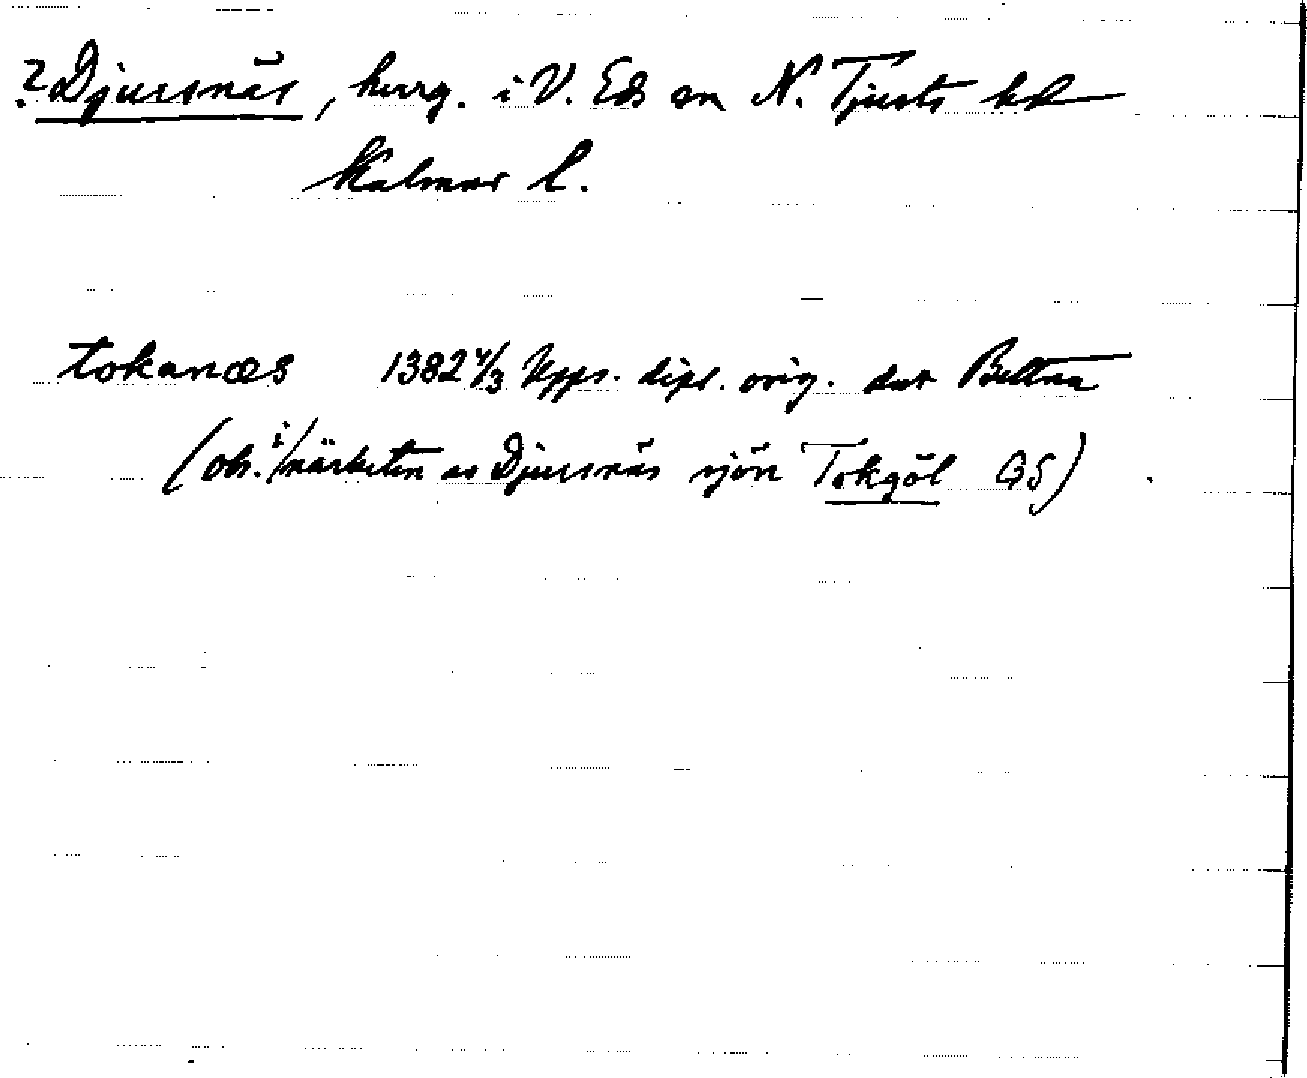 ? Djursnäs, herrg. i V. Eds sn N. Tjusts hd
Kalmar l.
tokanæs 1382 4/3 Upps. dipl. orig. dat Bettna
(obs. i närheten av Djursnäs sjön Tokgöl GS)